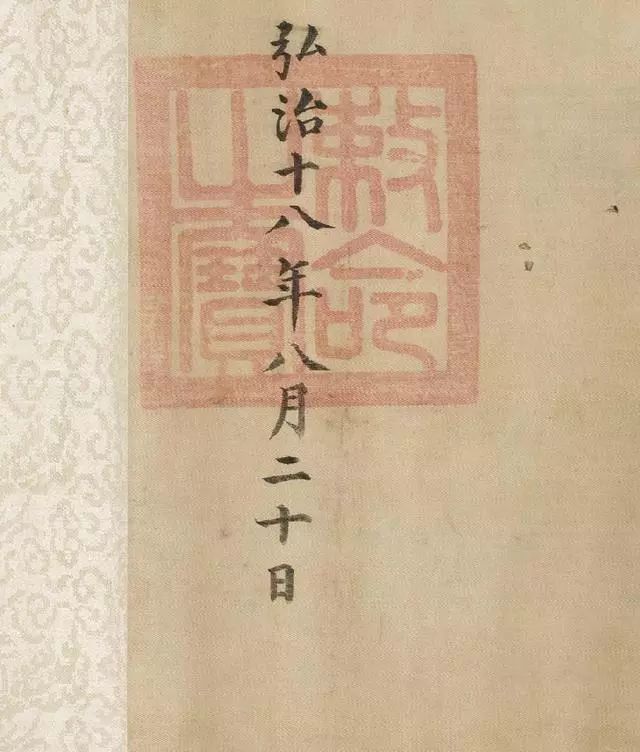 弘治十八年八月二十日
敕命之寶